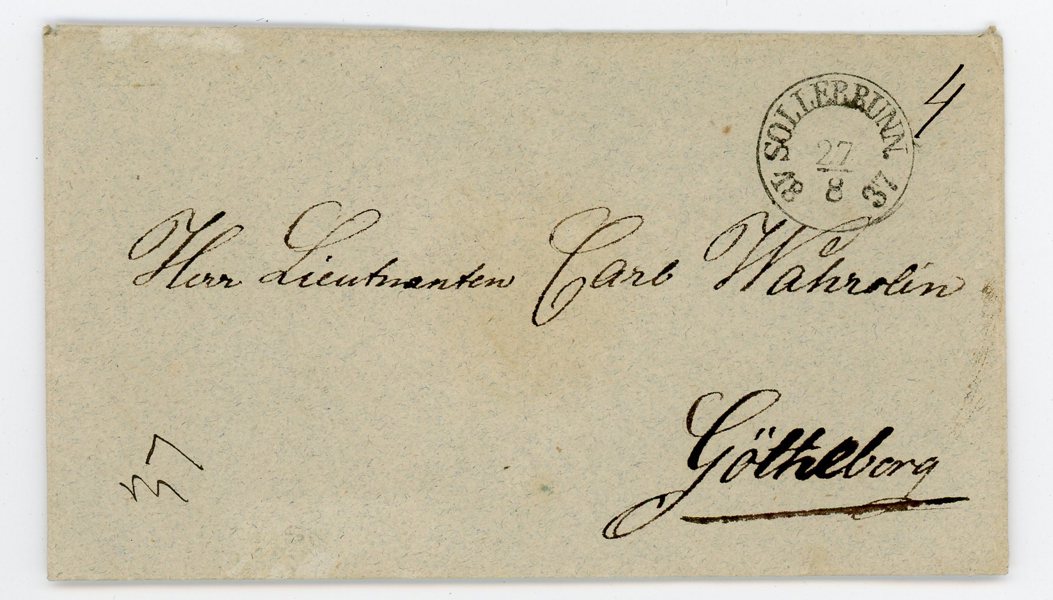 4
SOLLEBRUNN.
27
8
18 37
Herr Lieutnanten Carl Wåhrolin
Götheborg
37